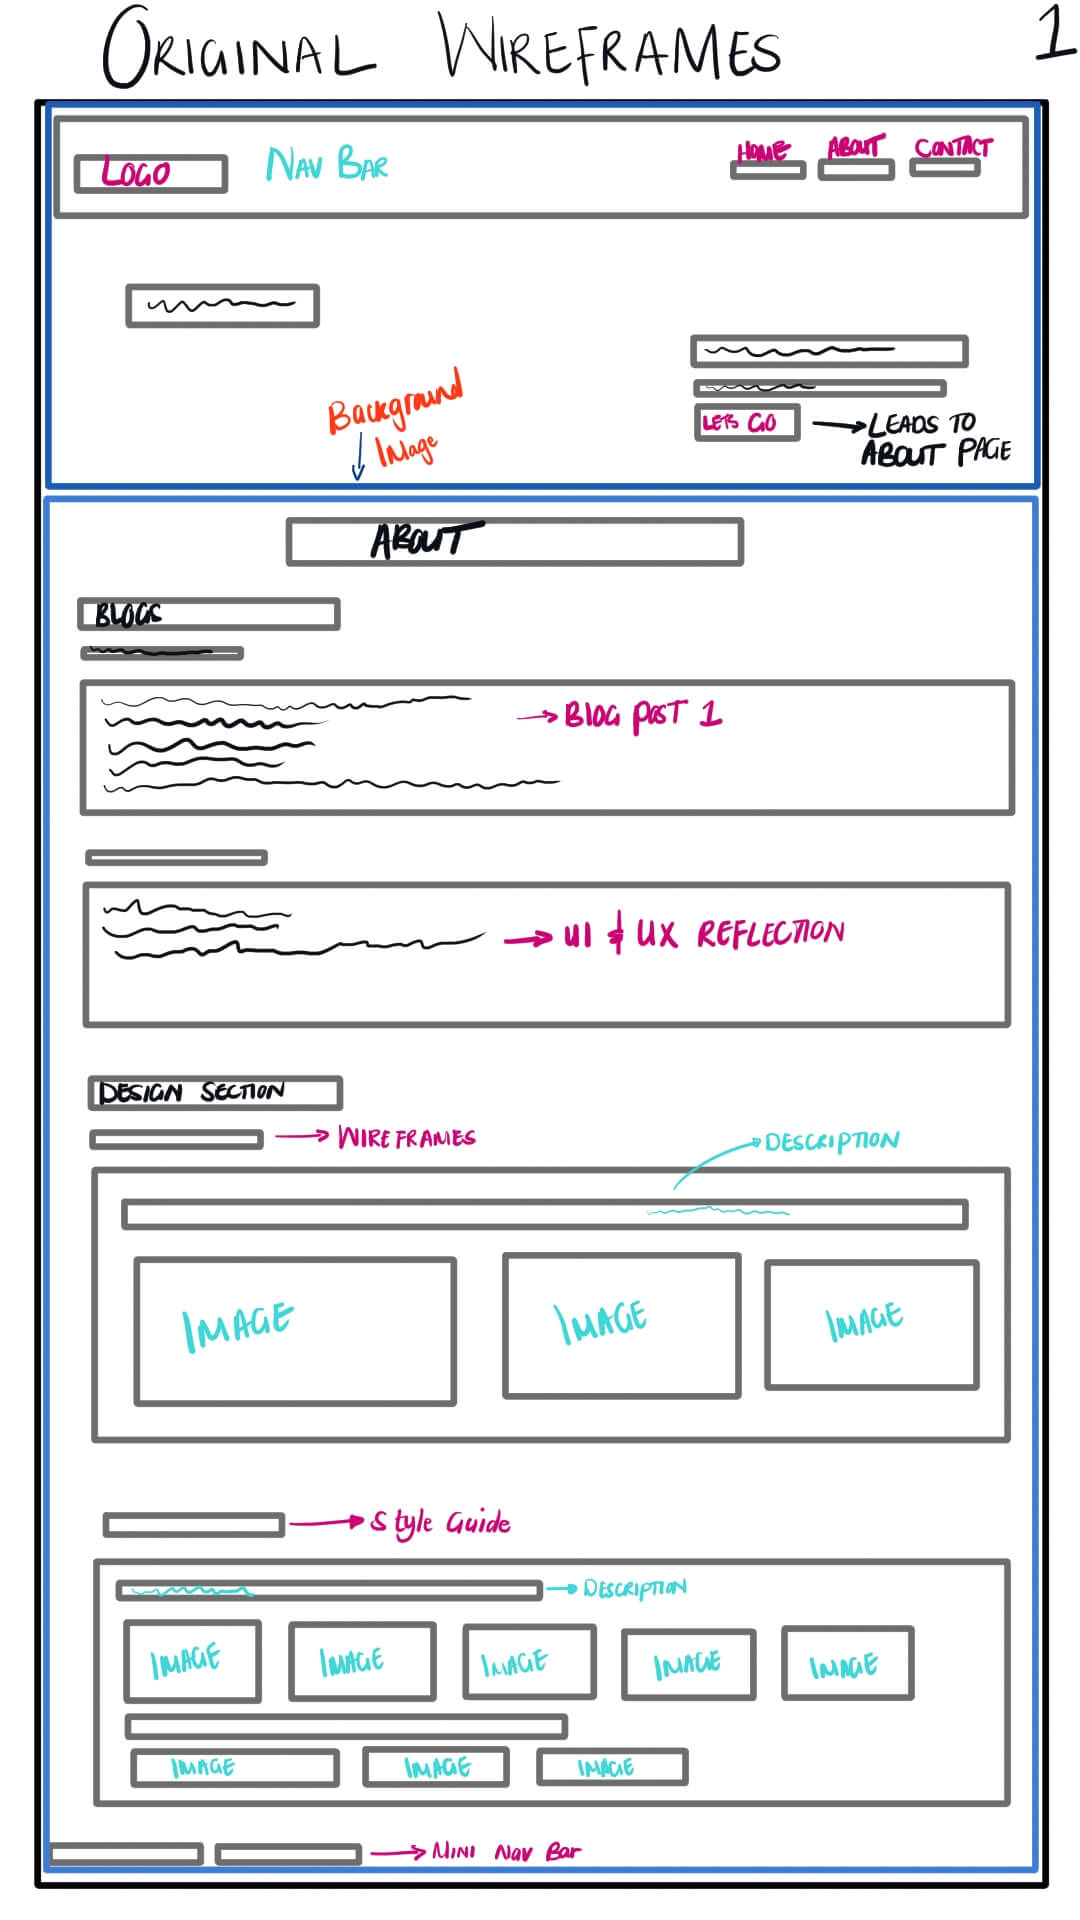 ORIGINAL WIREFRAMES 1
LOGO
NAV BAR
HOME
ABOUT
CONTACT
Background
Image
LETS GO
LEADS TO
ABOUT PAGE
ABOUT
BLOGS
BLOG POST 1
UI & UX REFLECTION
DESIGN SECTION
WIREFRAMES
DESCRIPTION
IMAGE
IMAGE
IMAGE
Style Guide
DESCRIPTION
IMAGE
IMAGE
IMAGE
IMAGE
IMAGE
IMAGE
IMAGE
IMAGE
MINI Nav Bar